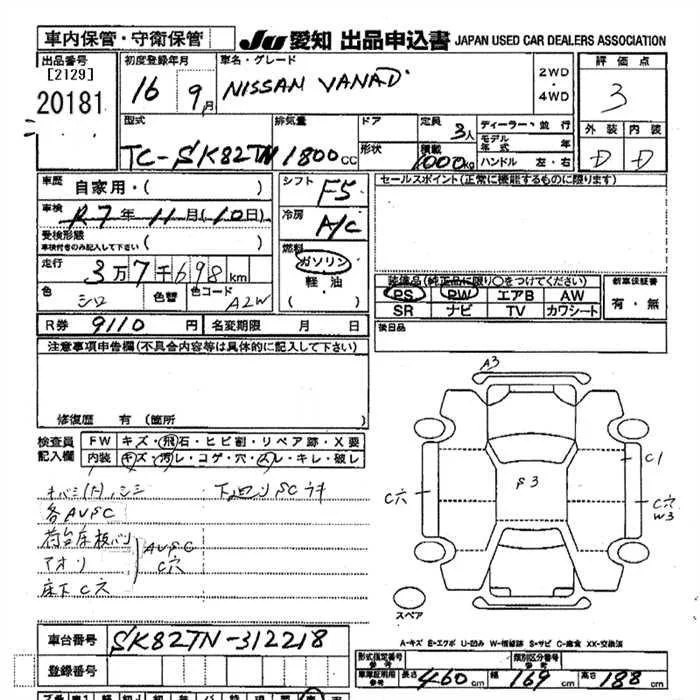 車内保管・守衛保管 JU 愛知 出品申込書 JAPAN USED CAR DEALERS ASSOCIATION
出品番号 [2129] 20181
初度登録年月 16 9月
車名・グレード NISSAN VANAD
2WD・4WD
評価点 3
外装 D 内装 D
型式 TC-SK82TN
排気量 1800cc
ドア
形状
定員 3人
積載 1000kg
ディーラー・並行
モデル年式 年
ハンドル 左・右
車歴 自家用・( )
車検 R7年11月(10日)
受検形態 車検付きのみ記入して下さい ( )
走行 3万7千698km
色 シロ 色替 色コード A2W
シフト F5
冷房 A/C
燃料 ガソリン
軽・油
・( )
セールスポイント(正常に機能するものに限ります)
装備品(純正品に限り○をつけてください)
PS PW エアB AW
SR ナビ TV カワシート
新車保証書 有・無
後日品
R券 9110円 名変期限 月 日
注意事項申告欄(不具合内容等は具体的に記入して下さい)
修復歴 有(箇所 )
検査員記入欄
FW キズ・飛石・ヒビ割・リペア跡・X要
内装 キズ・汚レ・コゲ・穴・スレ・キレ・破レ
下廻りSCウキ
各AUSC
荷台床板バリ
アオリ
AUSC
C穴
床下C穴
A3
C1
C穴
S3
C穴
W3
スペア
A-キズ E-エクボ U-凹み W-補修跡 S-サビ C-腐食 XX-交換済
車台番号 SK82TN-312218
登録番号
形式指定番号 参考
類別区分番号 参考
車庫証明用参考 長さ 460cm 幅 169cm 高さ 188cm